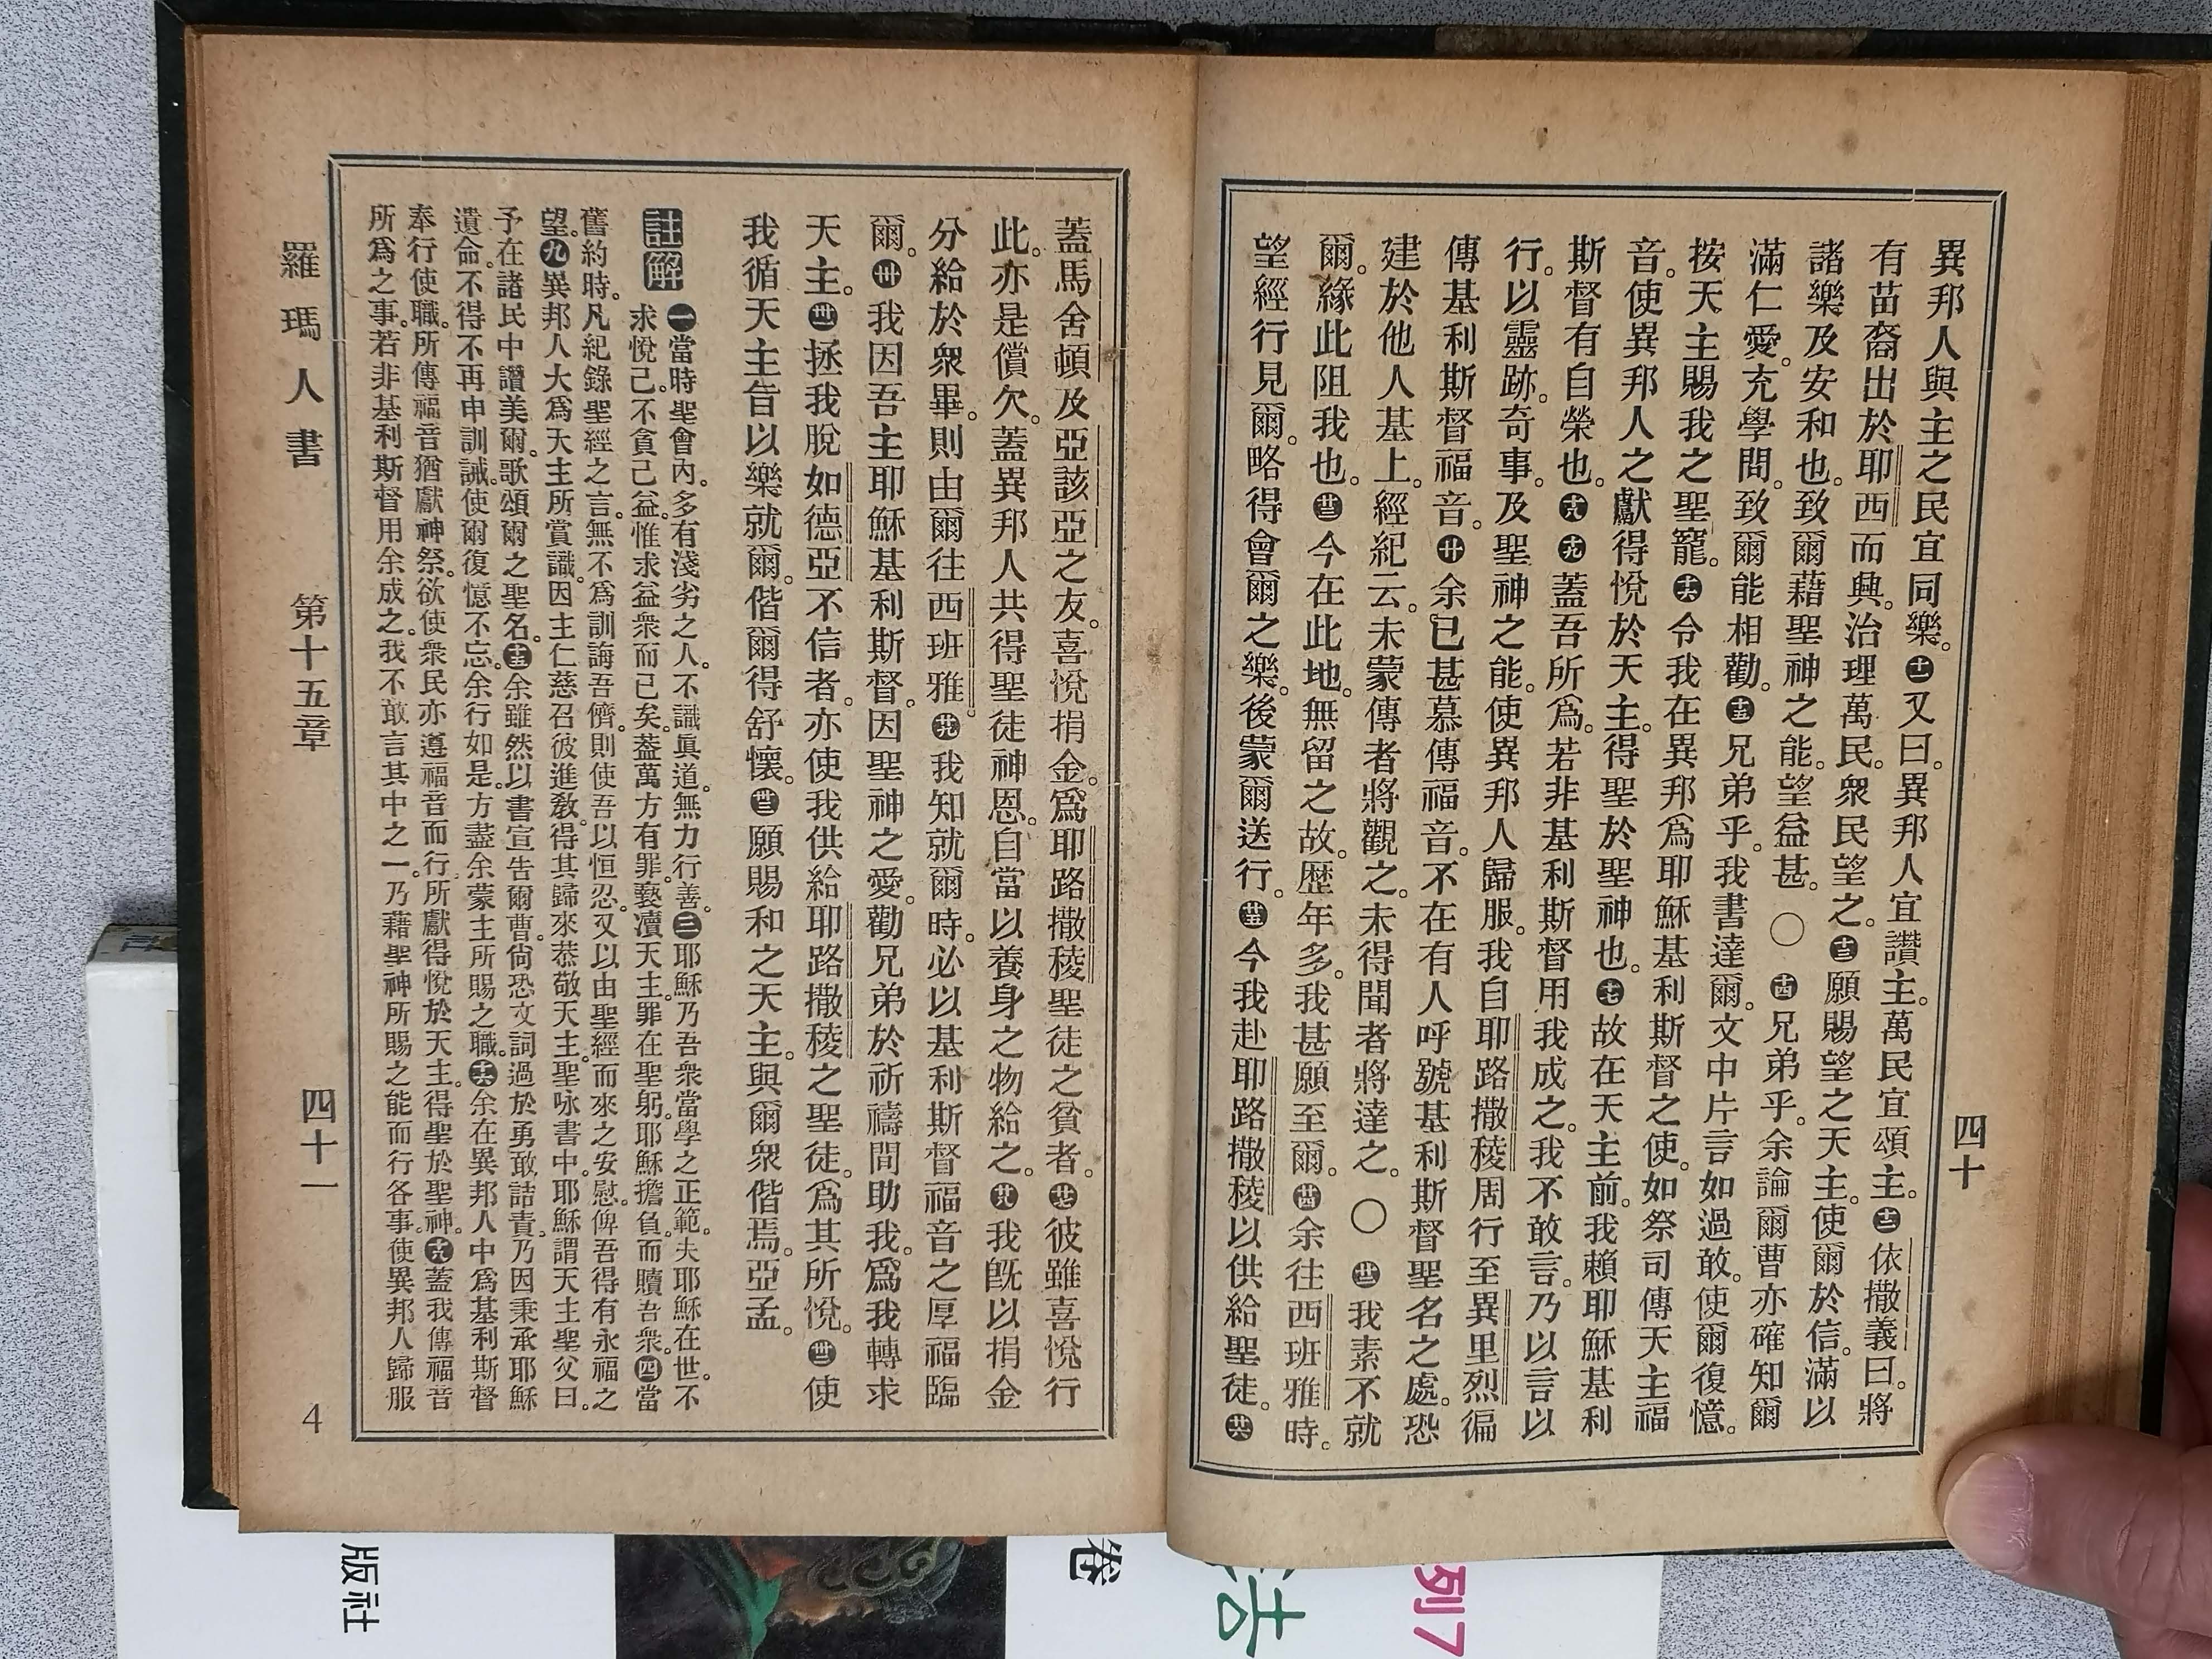 異邦人與主之民宜同樂。㊉一又曰。異邦人宜讚主。萬民宜頌主。十二依撒義曰。將
有苗裔出於耶西而興。治理萬民。衆民望之。十三願賜望之天主。使爾於信。滿以
諸樂及安和也。致爾藉聖神之能。望益甚。○十四兄弟乎。余論爾曹亦確知爾
滿仁愛。充學問。致爾能相勸。十五兄弟乎。我書達爾。文中片言如過敢。使爾復憶。
按天主賜我之聖寵。十六令我在異邦爲耶穌基利斯督之使。如祭司傳天主福
音。使異邦人之獻得悅於天主。得聖於聖神也。十七故在天主前。我賴耶穌基利
斯督有自榮也。十八十九蓋吾所爲。若非基利斯督用我成之。我不敢言。乃以言以
行。以靈跡。奇事。及聖神之能。使異邦人歸服。我自耶路撒稜周行至異里烈徧
傳基利斯督福音。廿余已甚慕傳福音。不在有人呼號基利斯督聖名之處。恐
建於他人基上。經紀云。未蒙傳者將觀之。未得聞者將達之。○廿二我素不就
爾。緣此阻我也。廿三今在此地。無留之故。歷年多。我甚願至爾。廿四余往西班雅時。
望經行見爾。略得會爾之樂。後蒙爾送行。廿五今我赴耶路撒稜以供給聖徒。廿六
四十
蓋馬舍頓及亞該亞之友。喜悅捐金。爲耶路撒稜聖徒之貧者。廿七彼雖喜悅行
此。亦是償欠。蓋異邦人共得聖徒神恩。自當以養身之物給之。廿八我旣以捐金
分給於衆畢。則由爾往西班雅。廿九我知就爾時。必以基利斯督福音之厚福臨
爾。卅我因吾主耶穌基利斯督。因聖神之愛。勸兄弟於祈禱間助我。爲我轉求
天主。卅一拯我脫如德亞不信者。亦使我供給耶路撒稜之聖徒。爲其所悅。卅二使
我循天主旨以樂就爾。偕爾得舒懷。卅三願賜和之天主。與爾衆偕焉。亞孟。
註解 一當時聖會內。多有淺劣之人。不識眞道。無力行善。三耶穌乃吾衆當學之正範。夫耶穌在世。不
求悅己。不貪己益。惟求益衆而已矣。蓋萬方有罪。褻瀆天主。罪在聖躬。耶穌擔負。而贖吾衆。四當
舊約時。凡紀錄聖經之言。無不爲訓誨吾儕。則使吾以恒忍。又以由聖經而來之安慰。俾吾得有永福之
望。九異邦人大爲天主所賞識。因主仁慈召彼進敎。得其歸來恭敬天主。聖咏書中。耶穌謂天主聖父曰。
予在諸民中讚美爾。歌頌爾之聖名。十五余雖然以書宣告爾曹。尙恐文詞過於勇敢。詰責。乃因秉承耶穌
遺命。不得不再申訓誡。使爾復憶不忘。余行如是。方盡余蒙主所賜之職。十六余在異邦人中爲基利斯督
奉行使職。所傳福音猶獻神祭。欲使衆民亦遵福音而行。所獻得悅於天主。得聖於聖神。十八蓋我傳福音
所爲之事。若非基利斯督用余成之。我不敢言其中之一。乃藉聖神所賜之能而行各事。使異邦人歸服
羅瑪人書 第十五章 四十一 4
版社
卷
列7